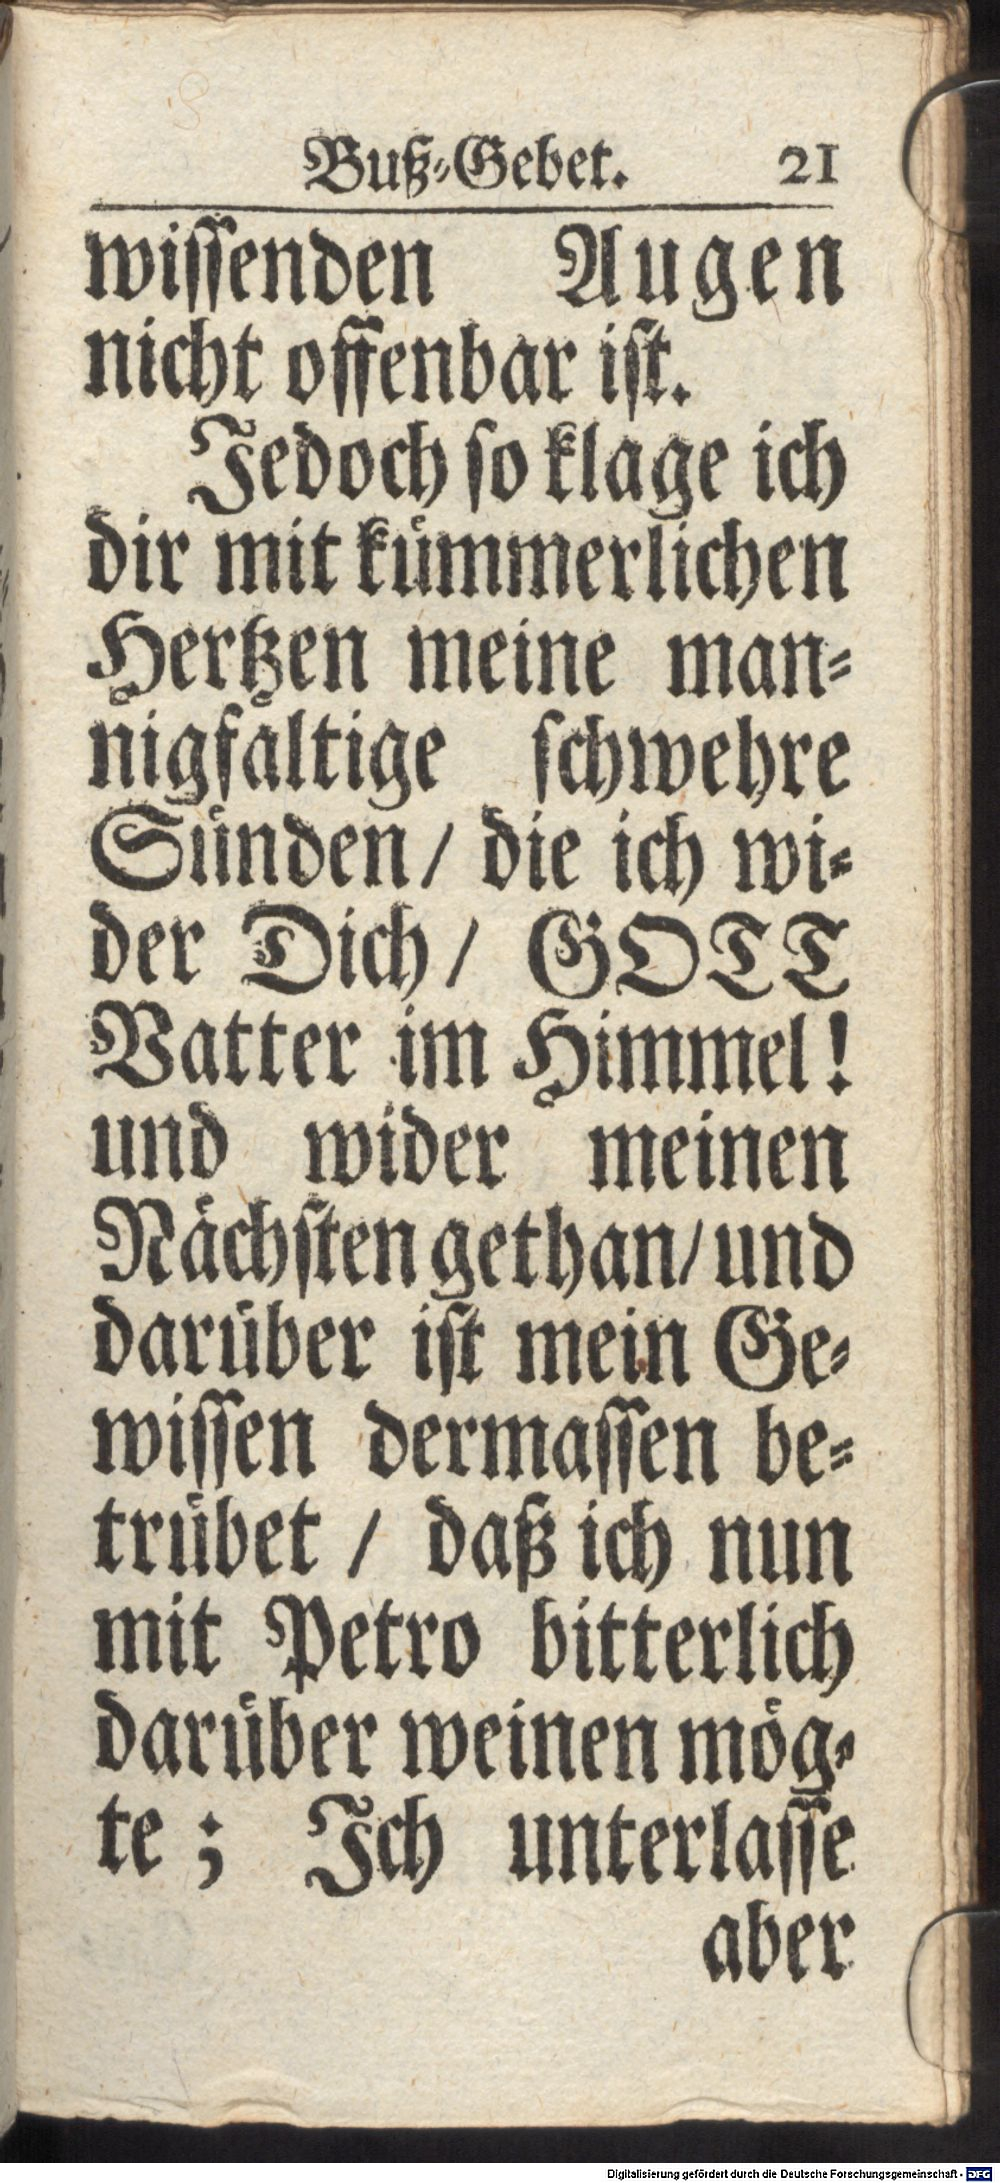 Buß-Gebet. 21
wissenden Augen
nicht offenbar ist.
Jedoch so klage ich
dir mit kümmerlichen
Hertzen meine man-
nigfältige schwehre
Sünden/ die ich wi-
der Dich/ GOTT
Vatter im Himmel!
und wider meinen
Nächsten gethan/ und
darüber ist mein Ge-
wissen dermassen be-
trübet / daß ich nun
mit Petro bitterlich
darüber weinen mög-
te ; Ich unterlasse
aber
Digitalisierung gefördert durch die Deutsche Forschungsgemeinschaft - DFG